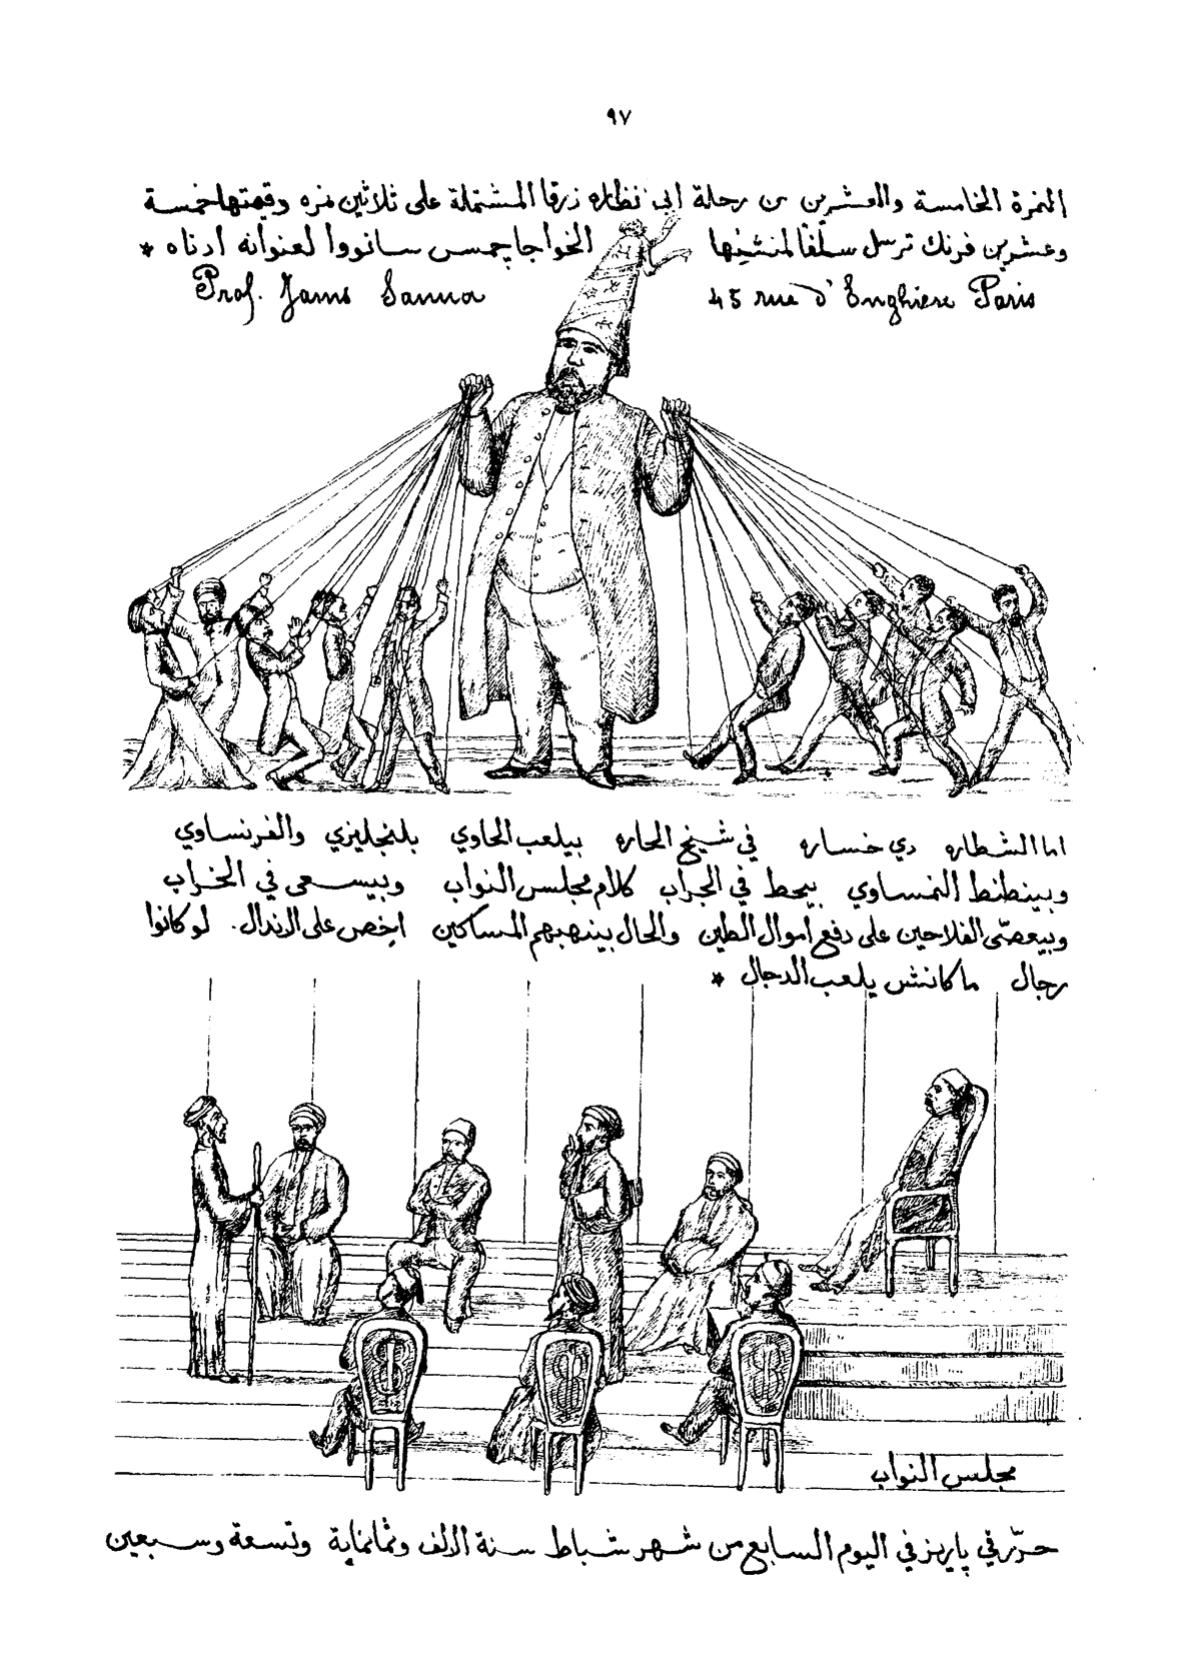 ٩٧
النمرة الخامسة والعشرين من رحلة ابي نظاره زرقا المشتملة على ثلاثين نمره وقيمتها خمسة
وعشرين فرنك ترسل سلفًا لمنشئها الخواجا جمس سانووا لعنوانه ادناه *
Prof. James Sanua 45 rue d'Enghiere Paris
اما الشطاره دي خساره في شيخ الحاره بيلعب الحاوي بلنجليزي والفرنساوي
وبينطنط النمساوي بيحط في الجراب كلام مجلس النواب وبيسعى في الخراب
وبيعصّى الفلاحين على دفع اموال الطين والحال بينهبهم المساكين اخص على الاندال. لو كانوا
رجال ما كانش يلعب الدجال *
مجلس النواب
حرّر في پاريز في اليوم السابع من شهر شباط سنة الالف وثمانماية وتسعة وسبعين